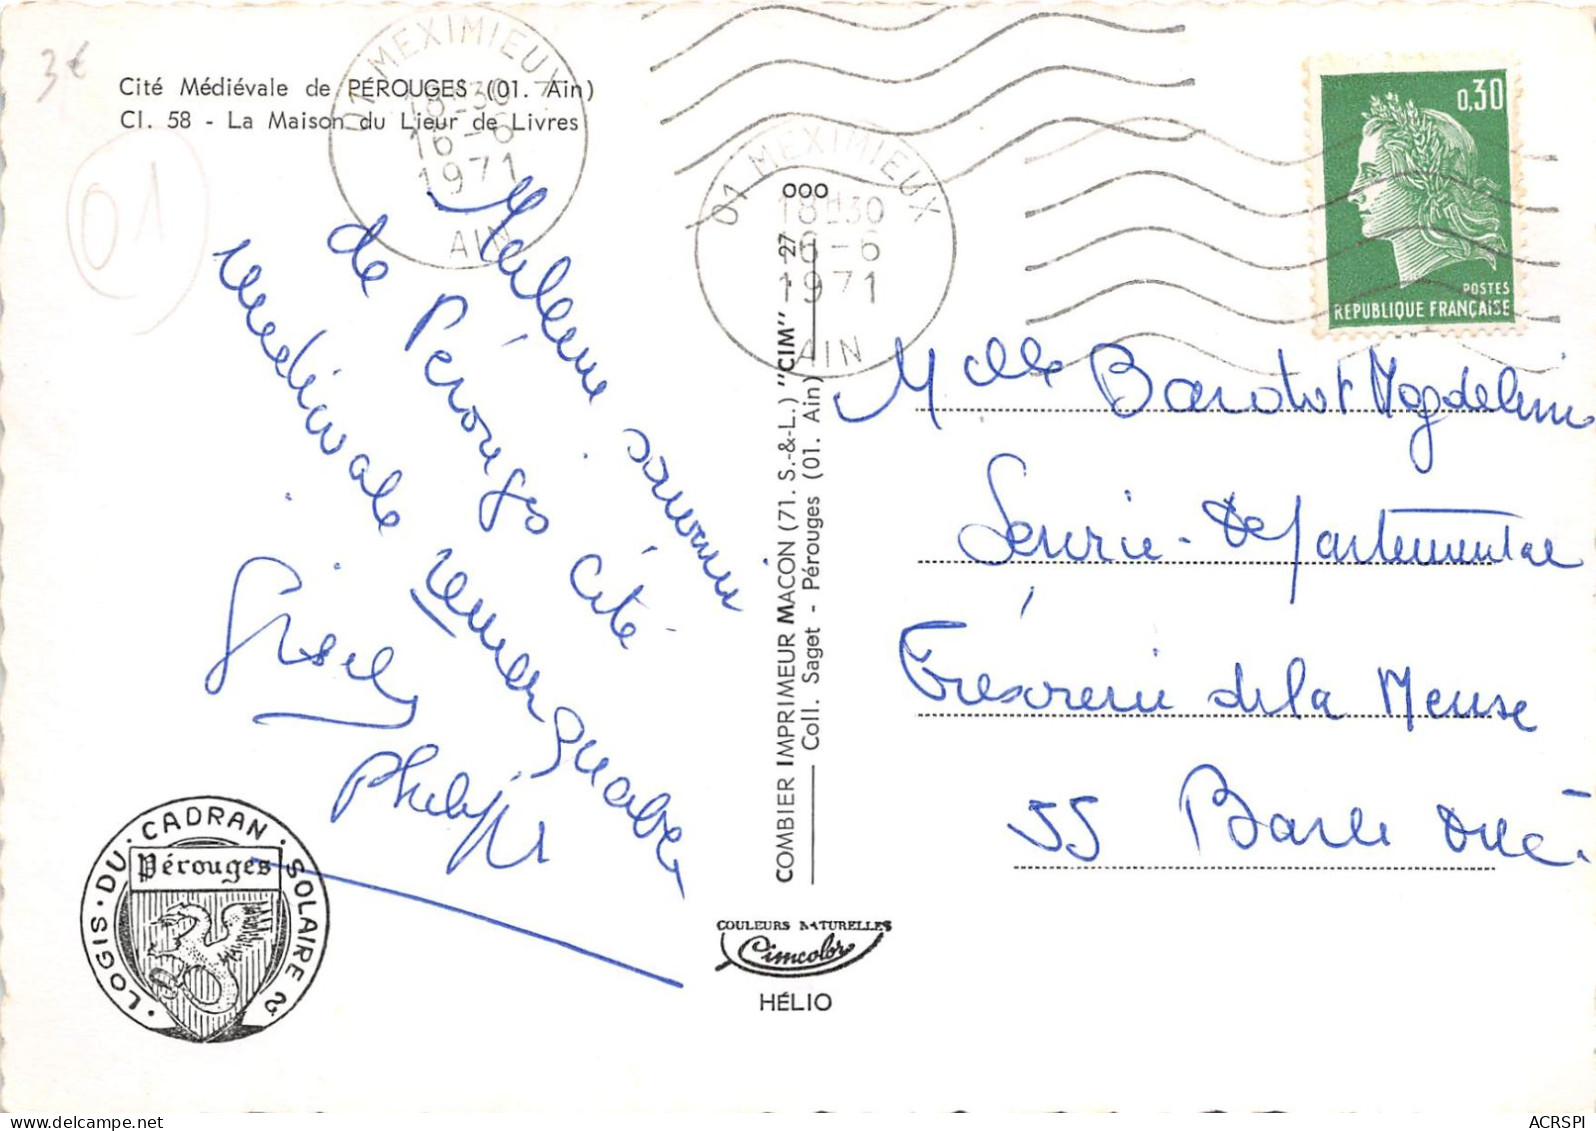 3€
Cité Médiévale de PÉROUGES (01. Ain)
Cl. 58 - La Maison du Lieur de Livres
01
01 MEXIMIEUX
18H30
16-6
1971
AIN
01 MEXIMIEUX
18H30
16-6
1971
AIN
0,30
POSTES
REPUBLIQUE FRANÇAISE
Meilleur souvenir
de Pérouges Cité
médiévale remarquable
Gisely
Philippe
COMBIER IMPRIMEUR MACON (71. S.-&-L.) "CIM" - 27 - 000
Coll. Saget - Pérouges (01. Ain)
Melle Bardot Magdeleine
Service Départementale
Trésorerie de la Meuse
55 Bar le Duc
LOGIS·DU·CADRAN·SOLAIRE
Pérouges
COULEURS NATURELLES
Cimcolor
HÉLIO
www.delcampe.net
ACRSPI